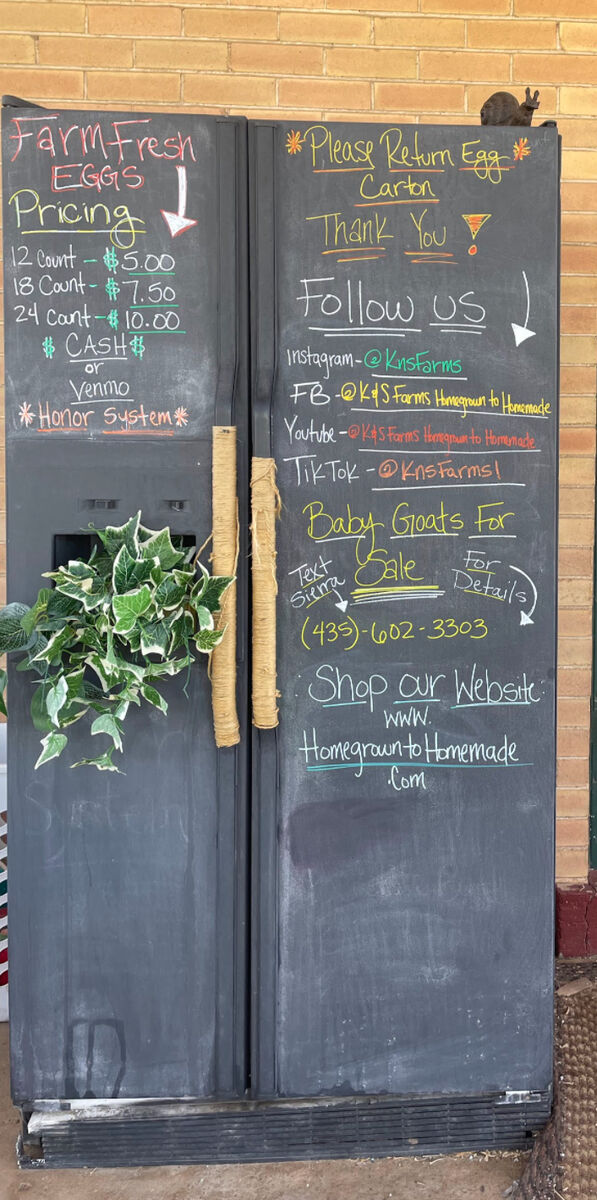 Farm Fresh
EGGS
Pricing
12 Count - $5.00
18 Count - $7.50
24 Count - $10.00
$ CASH $
or
Venmo
*Honor System*
*Please Return Egg*
Carton
Thank You!
Follow us
Instagram - @KnsFarms
FB - @K&S Farms Homegrown to Homemade
Youtube - @K&S Farms Homegrown to Homemade
TikTok - @KnsFarms1
Baby Goats For
Sale
Text
Sierra
For
Details
(435)-602-3303
Shop our Website
www.
HomegrowntoHomemade
.Com